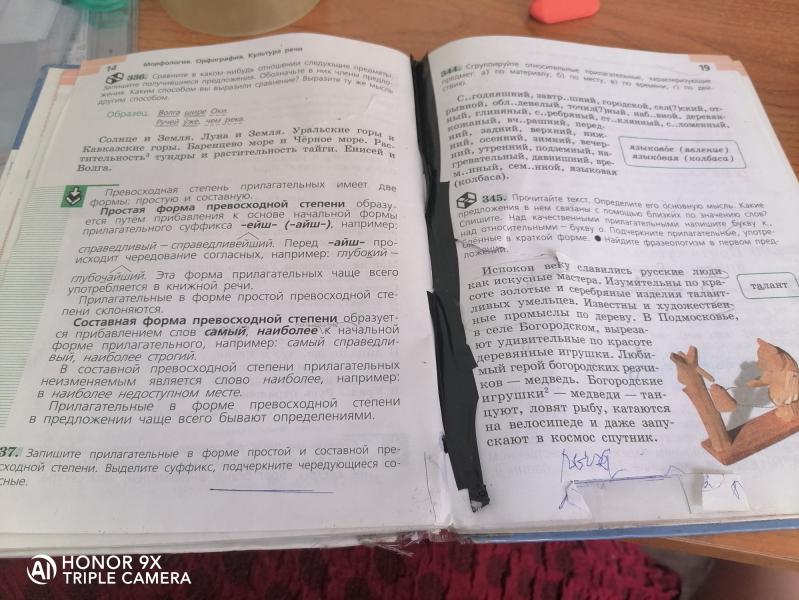 14
Морфология. Орфография. Культура речи
336. Сравните в каком-нибудь отношении следующие предметы.
Запишите получившиеся предложения. Обозначьте в них члены предло-
жения. Каким способом вы выразили сравнение? Выразите ту же мысль
другим способом.
Образец. Волга шире Оки.
Ручей у́же, чем река.
Солнце и Земля. Луна и Земля. Уральские горы и
Кавказские горы. Баренцево море и Чёрное море. Рас-
тительность³ тундры и растительность тайги. Енисей и
Волга.
Превосходная степень прилагательных имеет две
формы: простую и составную.
Простая форма превосходной степени образу-
ется путём прибавления к основе начальной формы
прилагательного суффикса -ейш- (-айш-), например:
справедливый — справедливейший. Перед -айш- про-
исходит чередование согласных, например: глубокий —
глубочайший. Эта форма прилагательных чаще всего
употребляется в книжной речи.
Прилагательные в форме простой превосходной сте-
пени склоняются.
Составная форма превосходной степени образует-
ся прибавлением слов самый, наиболее к начальной
форме прилагательного, например: самый справедли-
вый, наиболее строгий.
В составной превосходной степени прилагательных
неизменяемым является слово наиболее, например:
в наиболее недоступном месте.
Прилагательные в форме превосходной степени
в предложении чаще всего бывают определениями.
37. Запишите прилагательные в форме простой и составной пре-
сходной степени. Выделите суффикс, подчеркните чередующиеся со-
сные.
19
344. Сгруппируйте относительные прилагательные, характеризующие
предмет: а) по материалу; б) по месту; в) по времени; г) по дей-
ствию.
С..годняшний, завтр..шний, городской, сел(?)ский, от-
рывной, обл..денелый, точил(?)ный, наб..вной, деревян-
ный, глиняный, с..ребряный, ст..клянный, с..ломенный,
кожаный, вч..рашний, перед-
ний, задний, верхний, ниж-
ний, осенний, зимний, вечер-
ний, утренний, подземный, на-
гревательный, давнишний, вре-
м..нный, сем..нной, языковая
(колбаса).
языково́е (явление)
языко́вая (колбаса)
345. Прочитайте текст. Определите его основную мысль. Какие
предложения в нём связаны с помощью близких по значению слов?
Спишите. Над качественными прилагательными напишите букву к.,
над относительными — букву о. Подчеркните прилагательные, употре-
блённые в краткой форме. ● Найдите фразеологизм в первом пред-
ложении.
Испокон веку славились русские люди
как искусные мастера. Изумительны по кра-
соте золотые и серебряные изделия талант-
ливых умельцев. Известны и художествен-
ные промыслы по дереву. В Подмосковье,
в селе Богородском, выреза-
ют удивительные по красоте
деревянные игрушки. Люби-
мый герой богородских резчи-
ков — медведь. Богородские
игрушки² — медведи — тан-
цуют, ловят рыбу, катаются
на велосипеде и даже запу-
скают в космос спутник.
талант
HONOR 9X
TRIPLE CAMERA